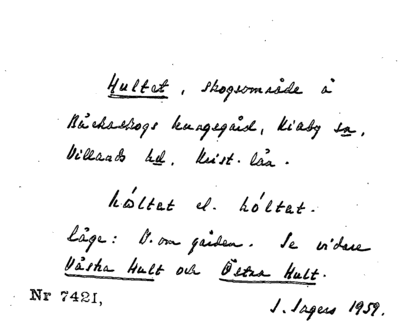 Hultet, skogsområde å
Bäckaskogs kungsgård, Kiaby sn,
Villands hd, Krist. län.
hóltet el. hóltat.
Läge: V. om gården. Se vidare
Västra Hult och Östra Hult.
Nr 7421, I. Ingers 1959.